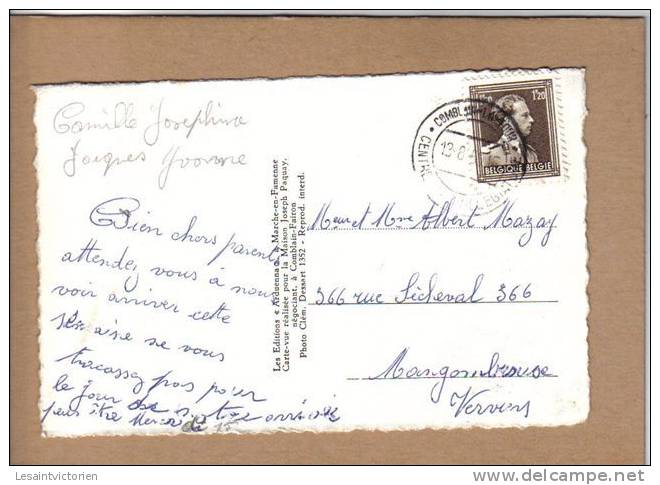 Camille Josephine
Jacques Yvonne
Bien chers parents
attendez vous à nous
voir arriver cette
semaine ne vous
tracassez pas pour
le jour de notre arrivée
peus être Mercredi 15
Les Editions « Arduenna », à Marche-en-Famenne
Carte-vue réalisée pour la Maison Joseph Paquay,
négociant, à Comblain-Fairon
Photo Clém. Dessart 1352 - Reprod. interd.
1F20 1F20
BELGIQUE BELGIE
COMBLAIN
CENTRE
13-8
Mr et Mme Albert Mazay
366 rue Sicheval 366
Mangombroux
Verviers
Lesaintvictorien
delcampe.net